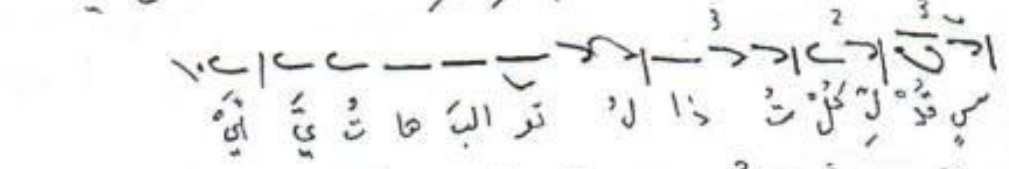 3 2 3
أَيْ يَّ تُ ها البَ تو لُ ذا تُ كُلْ لِ قُدْ سٍ